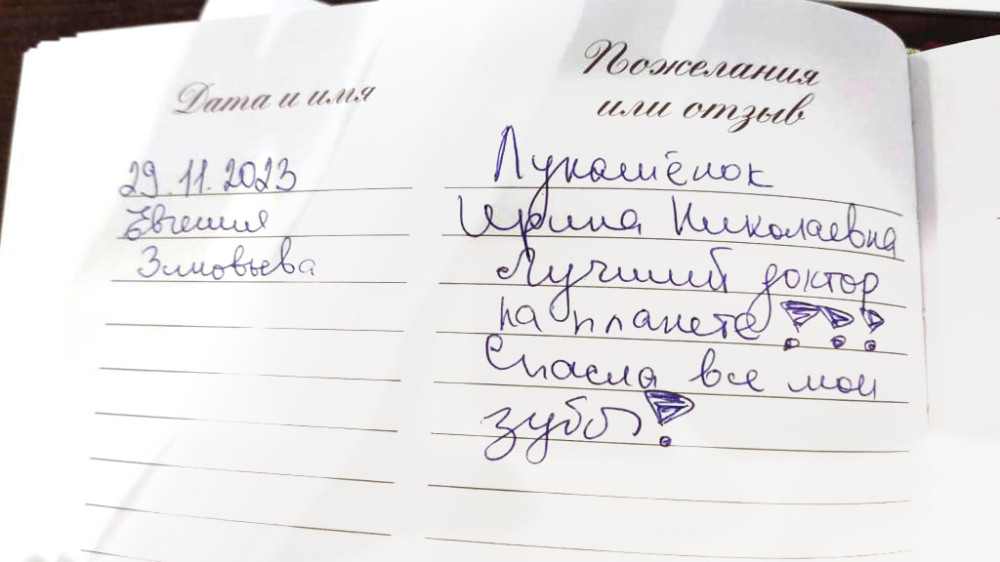 Дата и имя
Пожелания
или отзыв
29.11.2023
Евгения
Зиновьева
Лукашёнок
Ирина Николаевна
Лучший доктор
на планете!!!
Спасла все мои
зубы!